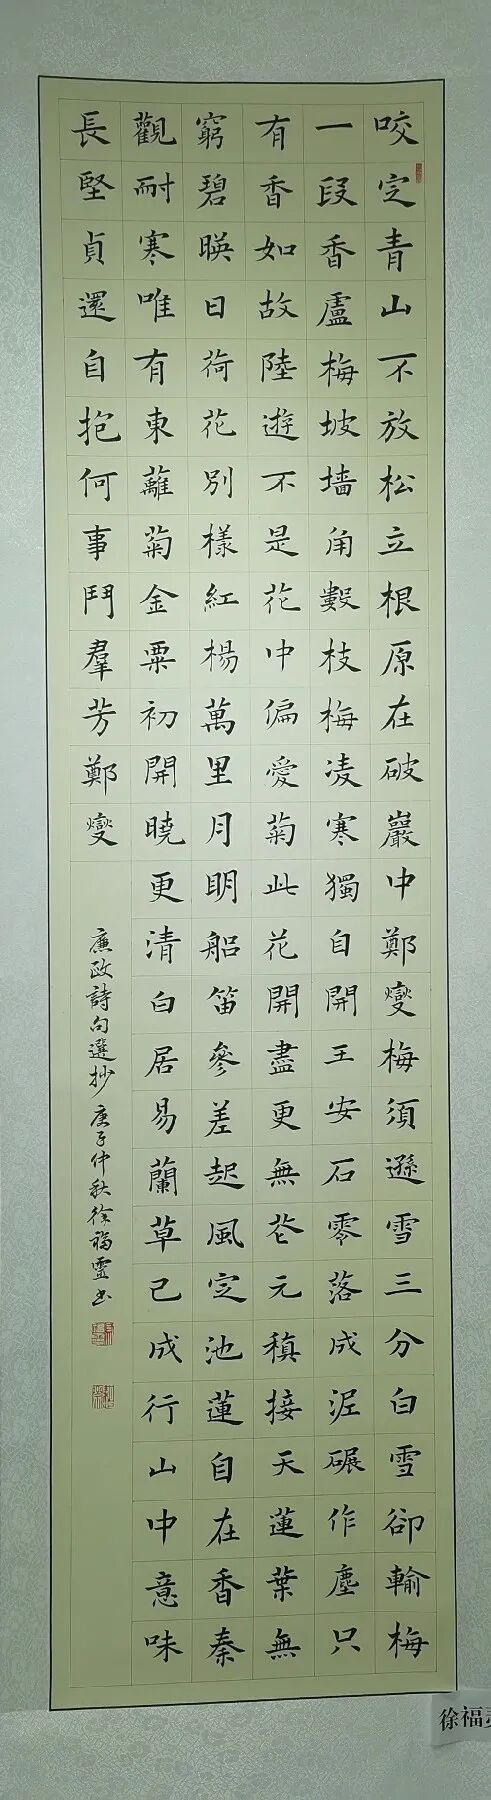 咬定青山不放松立根原在破巖中鄭燮梅須遜雪三分白雪卻輸梅
一段香盧梅坡墙角數枝梅凌寒獨自開王安石零落成泥碾作塵只
有香如故陸遊不是花中偏愛菊此花開盡更無花元稹接天蓮葉無
窮碧暎日荷花別樣紅楊萬里月明船笛參差起風定池蓮自在香秦
觀耐寒唯有東蘺菊金粟初開曉更清白居易蘭草已成行山中意味
長堅貞還自抱何事鬥羣芳鄭燮
廉政詩句選抄 庚子仲秋徐福靈书
徐福